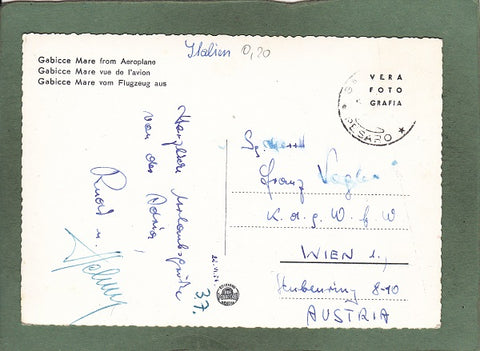 Italien 0,20
Gabicce Mare from Aeroplane
Gabicce Mare vue de l'avion
Gabicce Mare vom Flugzeug aus
VERA
FOTO
GRAFIA
* PESARO *
Herzlichen Urlaubsgrüße
von der Adria,
Franz
K. d. g. W. f. W
WIEN 1.,
Stubenring 8-10
AUSTRIA
37.